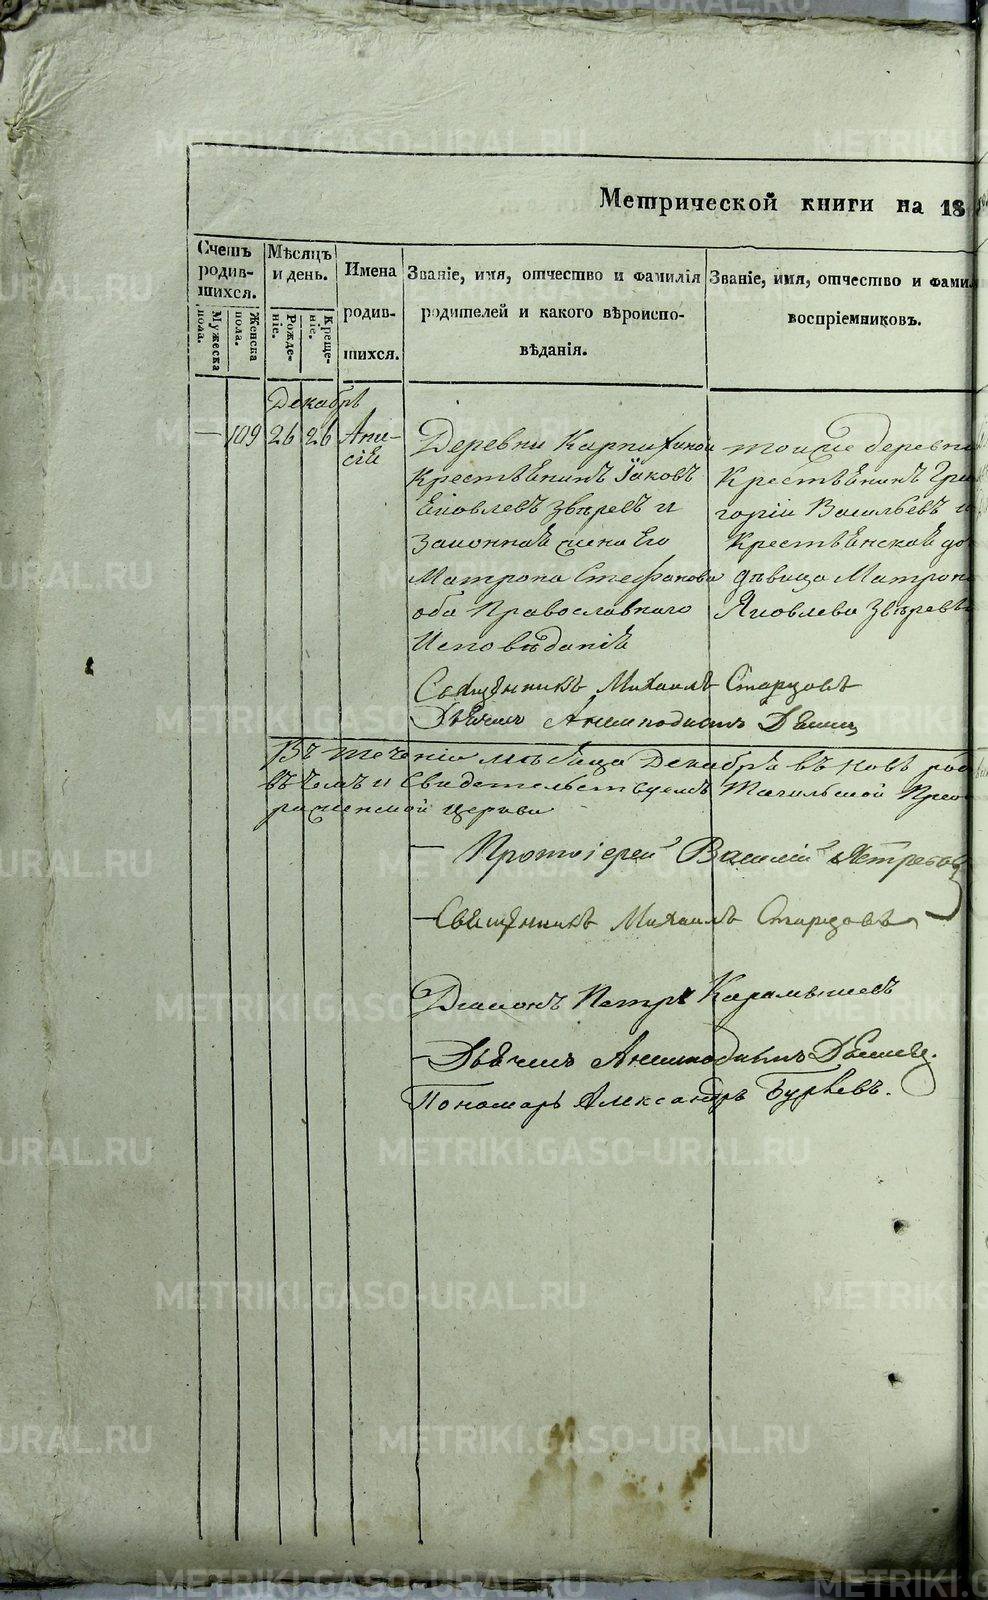 Метрической книги на 18
Счетъ родив-шихся.
Мужеска пола.
Женска пола.
Мѣсяцъ и день.
Рожде-ніе.
Креще-ніе.
Имена
родив-
шихся.
Званіе, имя, отчество и фамилія
родителей и какого вѣроиспо-
вѣданія.
Званіе, имя, отчество и фамил
воспріемниковъ.
Декабрь
— 109 26 26 Ани-
сія
Деревни Карпихиной
Крестьянинъ Іаковъ
Яковлевъ Звѣревъ и
Законная жена Его
Матрона Стефанова
оба Православнаго
Исповѣданія
тойже деревни
Крестьянинъ Гри
горій Васильевъ и
Крестьянская до
дѣвица Матрона
Яковлева Звѣрева
Священникъ Михаилъ Старцовъ
Дьячекъ Антиподистъ
Въ теченіи мѣсяца Декабря въ
въ чемъ и Свидетельствуемъ Тагильской Прео
раженской церкви
Протоіерей Василій Ястребов
Священникъ Михаилъ Старцовъ
Діаконъ Петръ Карамышевъ
Дьячекъ
Пономарь Александръ
METRIKI.GASO-URAL.RU